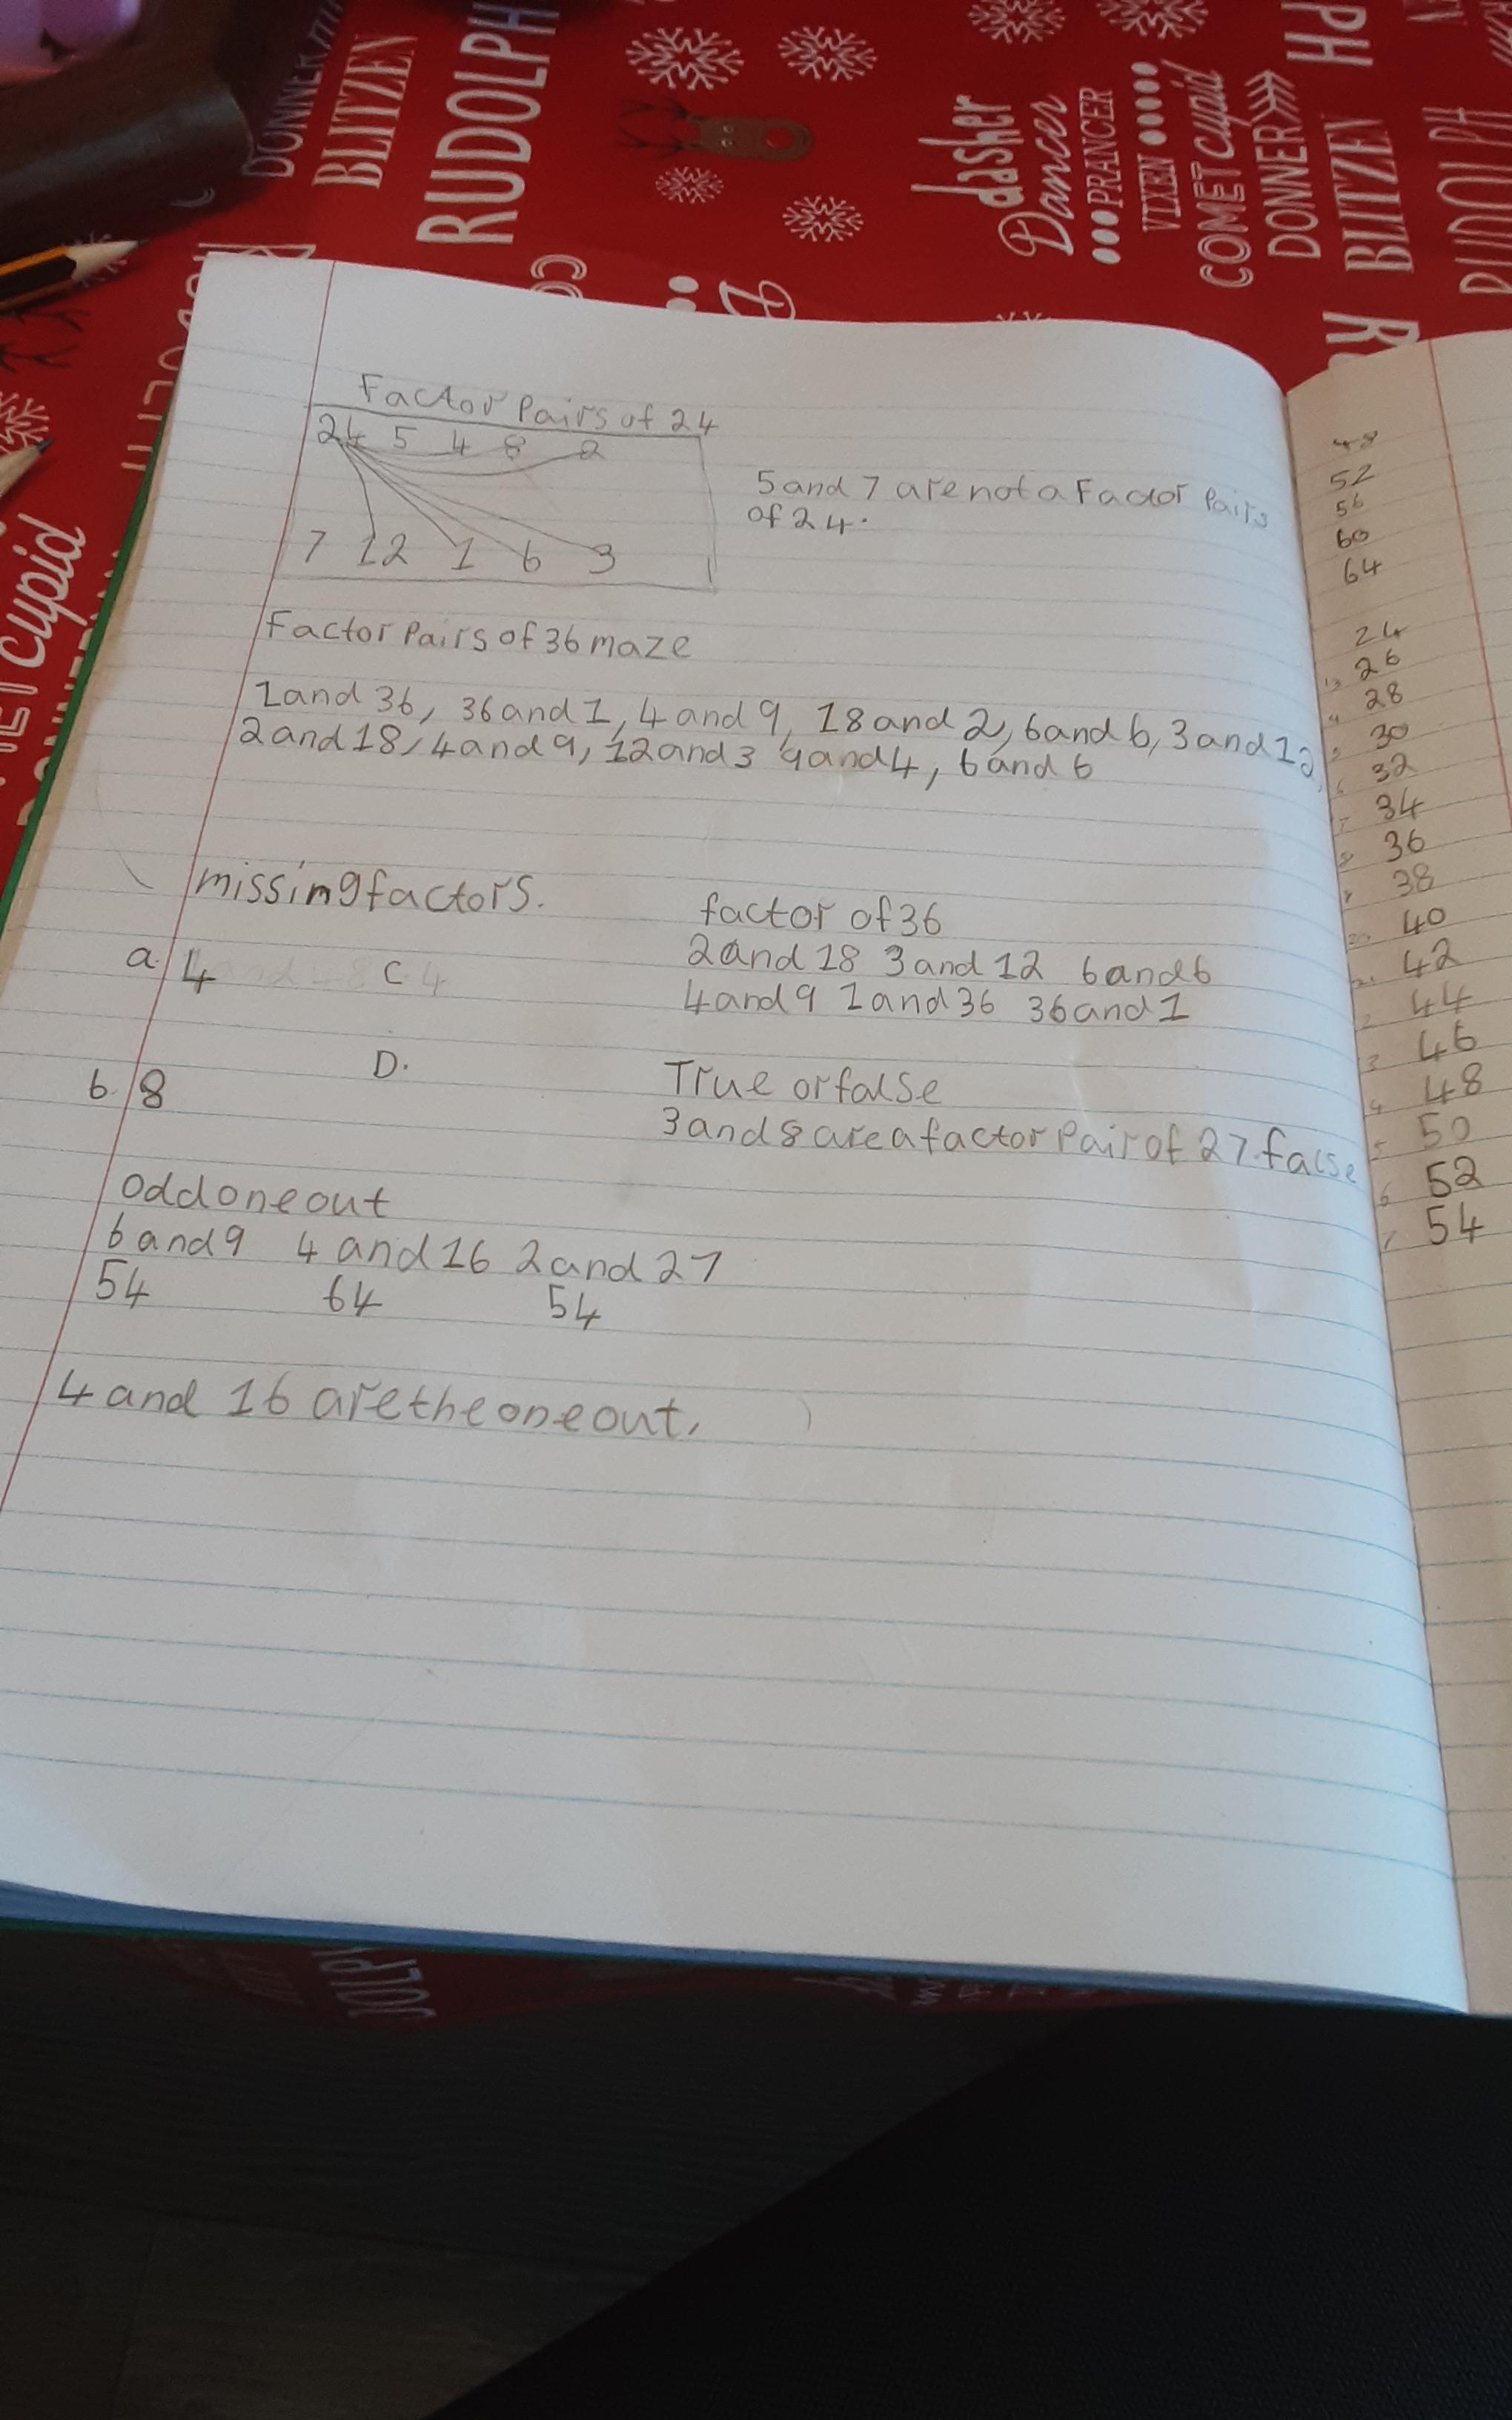 DONNER
BLITZEN
RUDOLPH
dasher
Dancer
PRANCER
VIXEN
COMET cupid
DONNER
BLITZEN
RUDOLPH
CUPID
Factor Pairs of 24
24 5 4 8 2
7 12 1 6 3
5 and 7 are not a Factor Pairs
of 24.
Factor Pairs of 36 maze
1 and 36, 36 and 1, 4 and 9, 18 and 2, 6 and 6, 3 and 12,
2 and 18, 4 and 9, 12 and 3 9 and 4, 6 and 6
missing factors.
a. 4 C. 4
b. 8 D.
factor of 36
2 and 18 3 and 12 6 and 6
4 and 9 1 and 36 36 and 1
True or false
3 and 8 are a factor Pair of 27. false
odd one out
6 and 9 4 and 16 2 and 27
54 64 54
4 and 16 are the one out.
48
52
56
60
64
24
26
28
30
32
34
36
38
40
42
44
46
48
50
52
54